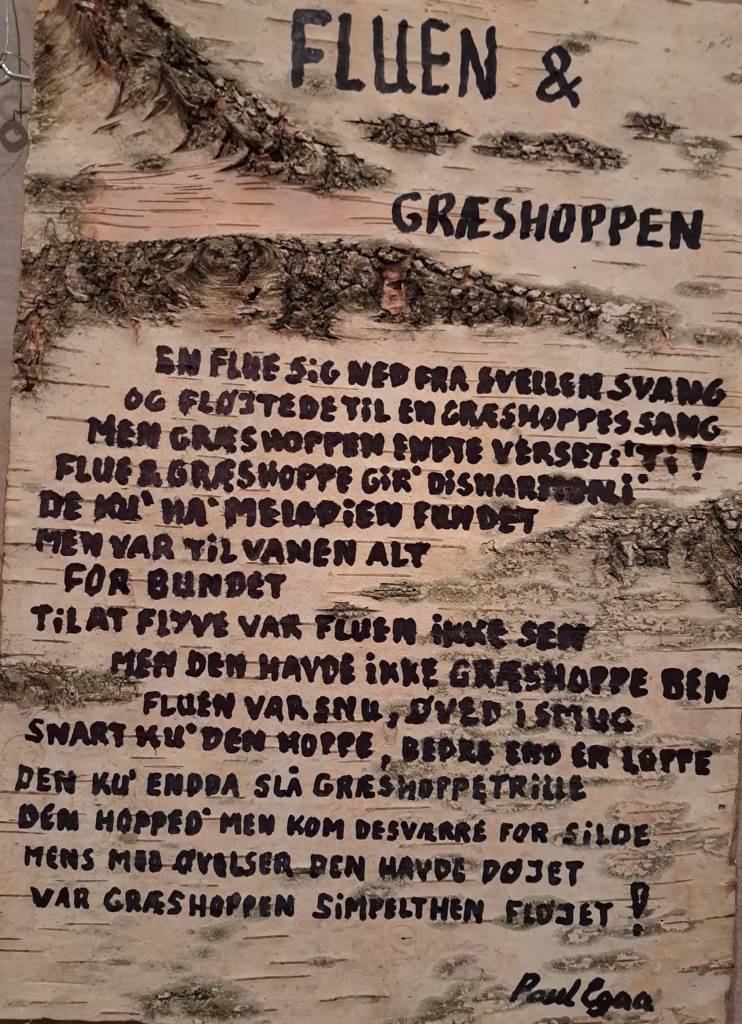 FLUEN &
GRÆSHOPPEN
EN FLUE SIG NED FRA SVELLEN SVANG
OG FLØJTEDE TIL EN GRÆSHOPPES SANG
MEN GRÆSHOPPEN ENDTE VERSET: "TI!
FLUE & GRÆSHOPPE GIR' DISHARMONI"
DE KU' HA' MELODIEN FUNDET
MEN VAR TIL VANEN ALT
FOR BUNDET
TIL AT FLYVE VAR FLUEN IKKE SEN
MEN DEN HAVDE IKKE GRÆSHOPPE BEN
FLUEN VAR SNU, ØVED I SMUG
SNART KU' DEN HOPPE, BEDRE END EN LOPPE
DEN KU' ENDDA SLÅ GRÆSHOPPETRILLE
DEN HOPPED' MEN KOM DESVÆRRE FOR SILDE
MENS MED ØVELSER DEN HAVDE DØJET
VAR GRÆSHOPPEN SIMPELTHEN FLØJET!
Paul Egaa